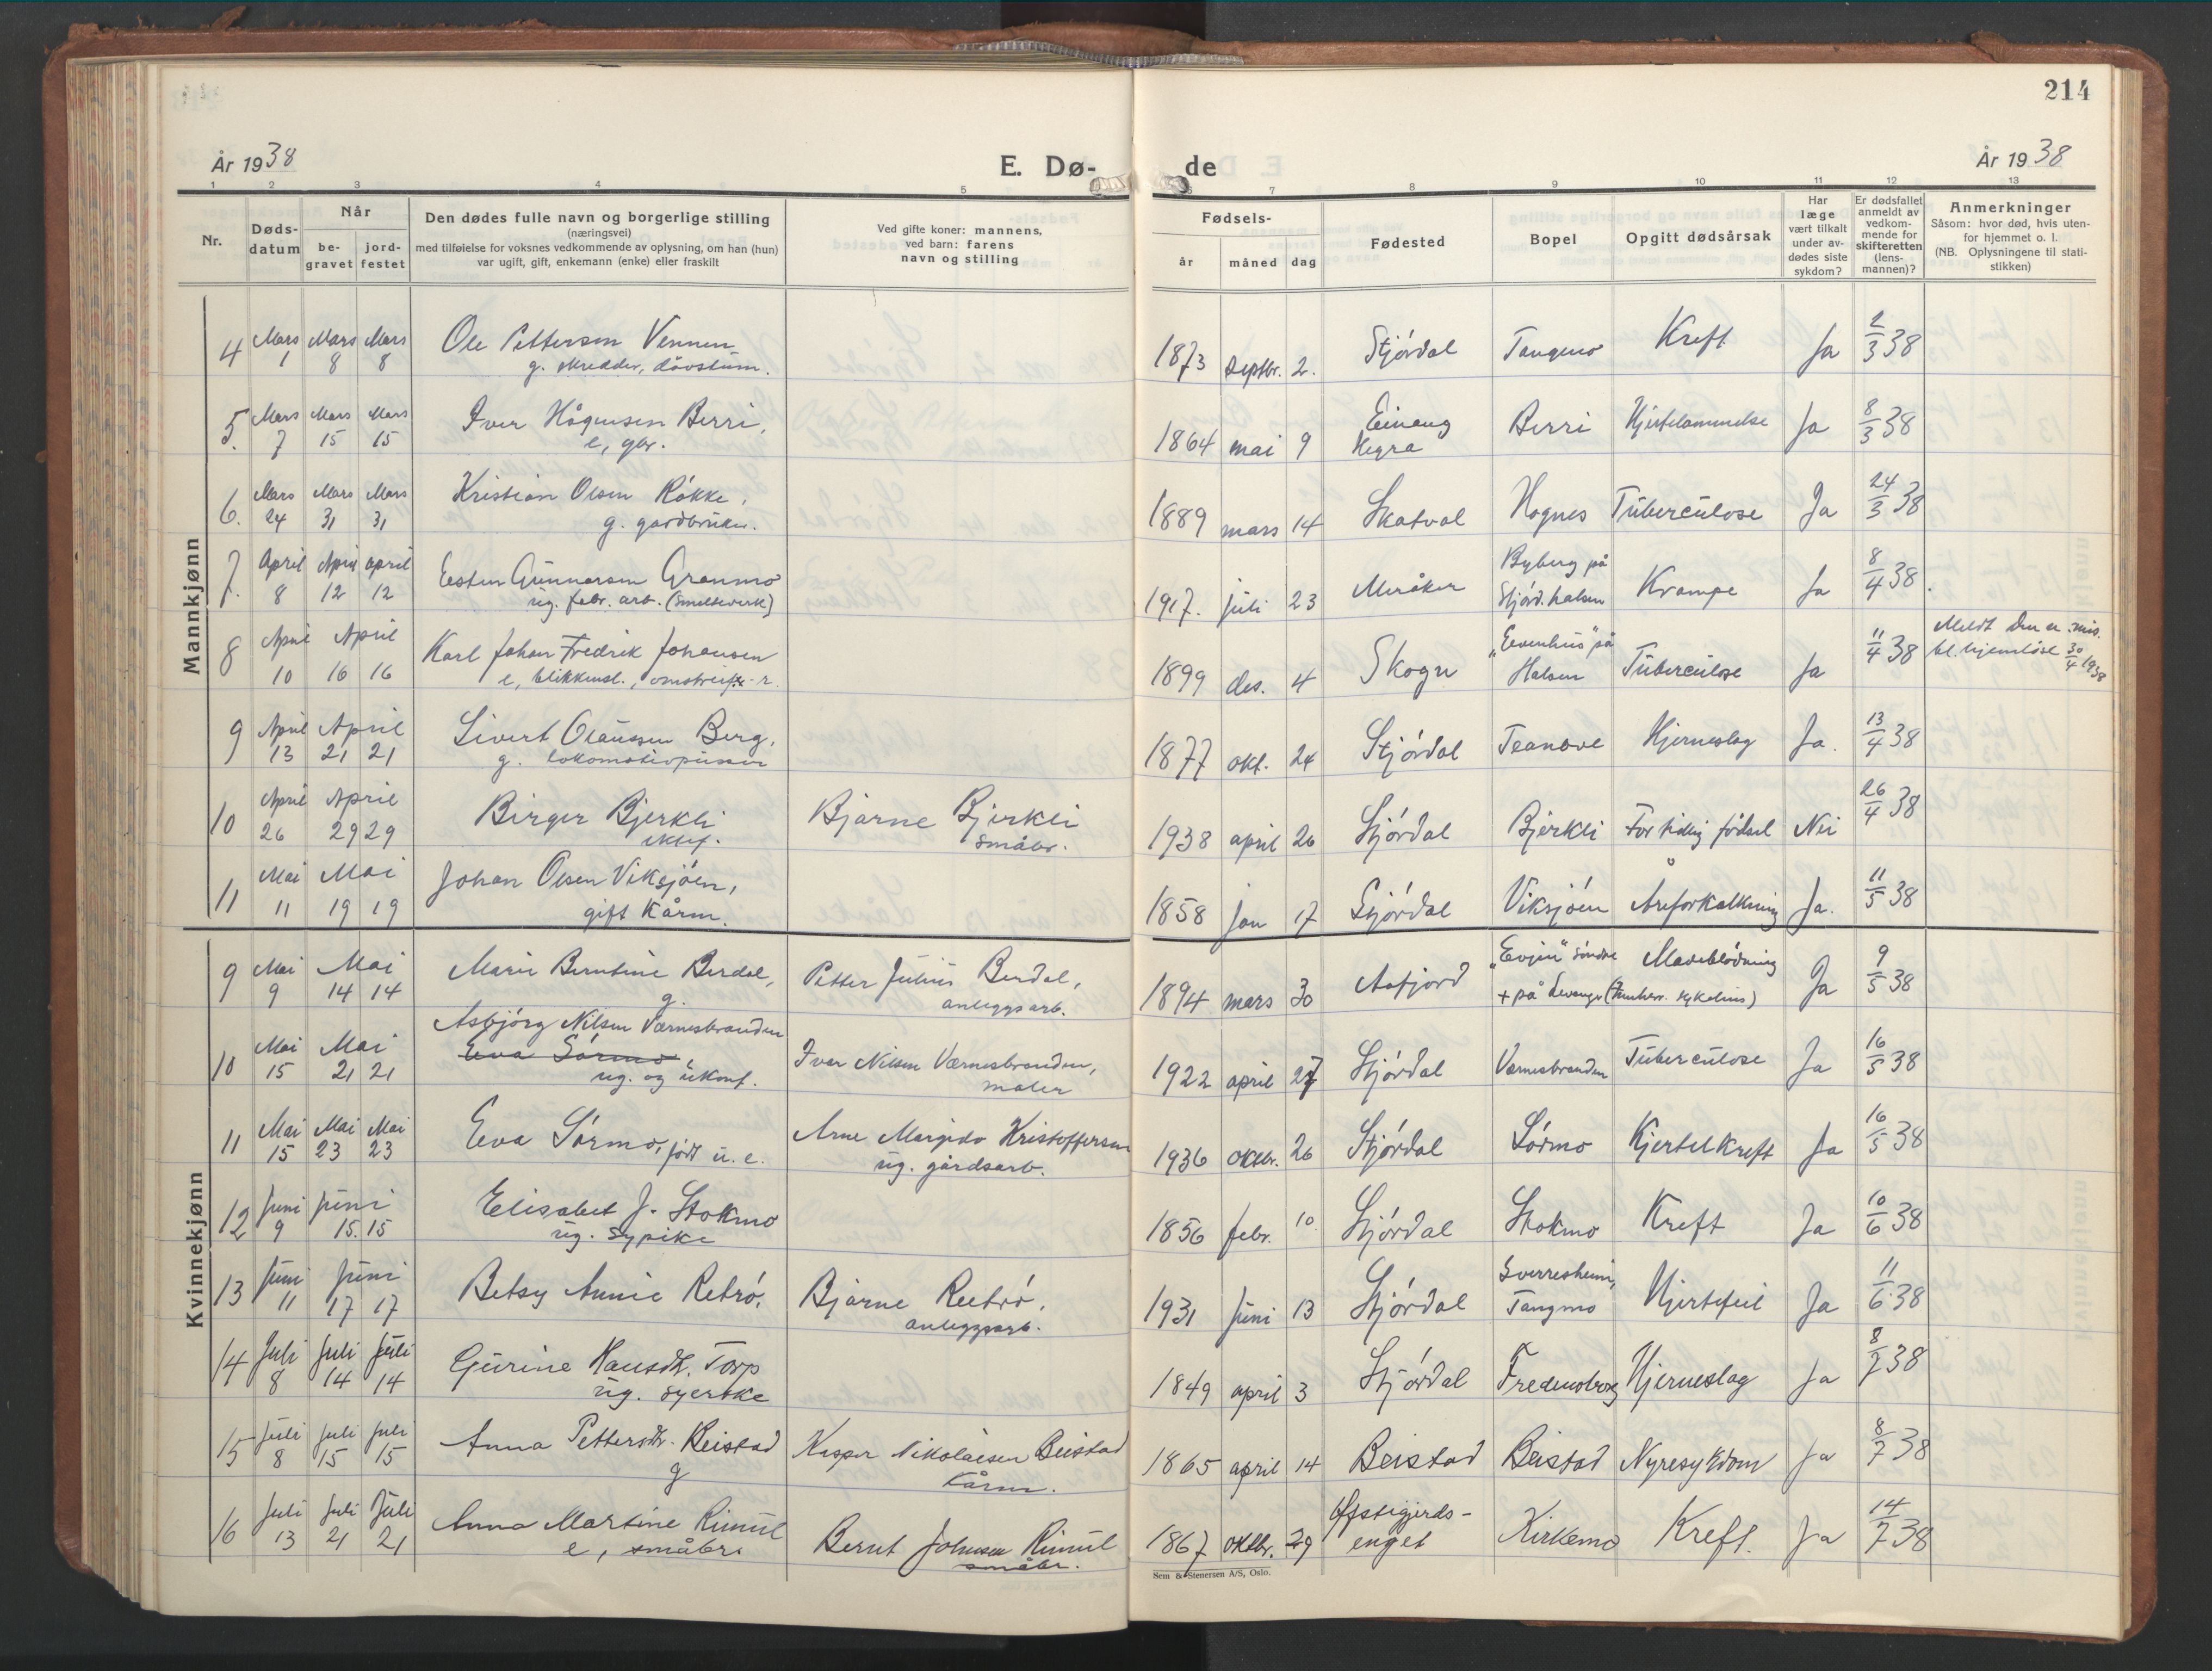 214
År 1938
E. Dø-
de
År 1938
1 2 3 4 5 6 7 8 9 10 11 12 13
Nr.
Døds-
datum
Når
be-
gravet
jord-
festet
Den dødes fulle navn og borgerlige stilling
(næringsvei)
med tilføielse for voksnes vedkommende av oplysning, om han (hun)
var ugift, gift, enkemann (enke) eller fraskilt
Ved gifte koner: mannens,
ved barn: farens
navn og stilling
Fødsels-
år måned dag
Fødested
Bopel
Opgitt dødsårsak
Har
læge
vært tilkalt
under av-
dødes siste
sykdom?
Er dødsfallet
anmeldt av
vedkom-
mende for
skifteretten
(lens-
mannen)?
Anmerkninger
Såsom: hvor død, hvis uten-
for hjemmet o. l.
(NB. Oplysningene til stati-
stikken)
Mannkjønn
4 Mars 1 Mars 8 Mars 8 Ole Petterson Vennen 1873 septbr. 2. Stjórdal Tangmo Kreft Ja 2/3 38
g. skredder, dövstum.
5. Mars 7 Mars 15 Mars 15 Iver Hågensen Berri, 1864 mai 9 Einang Hegra Berri Hjertelammelse Ja 8/3 38
e, gbr.
6. Mars 24 Mars 31 Mars 31 Kristian Olsen Rökke, 1889 mars 14 Skatval Hognes Tuberculose Ja 24/3 38
g. gardbruker.
7. April 8 April 12 April 12 Eesten Gunnarsen Granmo 1917. juli 23 Meråker Byberg på Stjörd.halsen Krampe Ja 8/4 38.
ug. fabr. arb. (Smelteverk)
8 April 10 April 16 16 Karl Johan Fredrik Johansen 1899 des. 4 Skogn "Evenhus" på Halsen Tuberculose Ja 11/4 38 Meldt
e, blikkensl., 30/4 1938
9 April 13 April 21 21 Sivert Olaussen Berg, 1877 okt. 24 Stjórdal Teanove Hjerneslag Ja. 13/4 38
g. lokomotivpusser
10 April 26 April 29 29 Birger Bjerkli Bjarne Bjerkli 1938 april 26 Stjórdal Bjerkli For tidlig födsel Nei 26/4 38
ektef. småbr.
11 Mai 11 Mai 19 19 Johan Olsen Viksjöen, 1858 jan 17 Stjórdal Viksjöen Åreforkalkning Ja. 11/5 38
gift kårm.
Kvinnekjønn
9 Mai 9 Mai 14 14 Marie Berntine Berdal, Petter Julius Berdal, 1894 mars 30 Aafjord "Evjen" söndre Maveblödning Ja 9/5 38
g. anleggsarb. + på Levanger (Innherr. sykehus)
10 Mai 15 Mai 21 21 Asbjörg Nilsen Værnesbranden Iver Nilsen Værnesbranden, 1922 april 27 Stjórdal Værnesbranden Tuberculose Ja 16/5 38
Eva Sörmo,
ug. og ukonf. maler
11 Mai 15 Mai 23 Mai 23 Eva Sörmo, født u. e. Arne Margido Kristoffersen 1936 oktbr. 26 Stjórdal Sörmo Kjertelkreft Ja 16/5 38
ug. gårdsarb.
12 Juni 9 Juni 15. 15 Elisabet J. Stokmo 1856 febr. 10. Stjórdal Stokmo Kreft Ja 10/6 38
ug. sypike
13 Juni 11 Juni 17 17 Betsy Annie Retrö. Bjarne Reetrö, 1931 juni 13 Stjórdal Sverresheim, Tangmo Hjertefeil Ja 11/6 38
anleggsarb.
14 Juli 8 Juli 14 Juli 14 Gurine Hansdt. Torp 1849 april 3 Stjórdal Fredensborg Hjerneslag Ja 8/7 38
ug. syerske
15 Juli 8 Juli 15 Juli 15 Anna Pettersdt. Beistad Kasper Nikolaisen Beistad 1865 april 14 Beistad Beistad Nyresykdom Ja 8/7 38
g Kårm.
16 Juli 13 Juli 21 Juli 21 Anna Martine Rimul Bernt Johnsen Rimul 1867 oktbr. 29 Öfstigjerds-enget Kirkemo Kreft. Ja 14/7 38
e, småbr. småbr.
Sem & Stenersen A/S, Oslo.